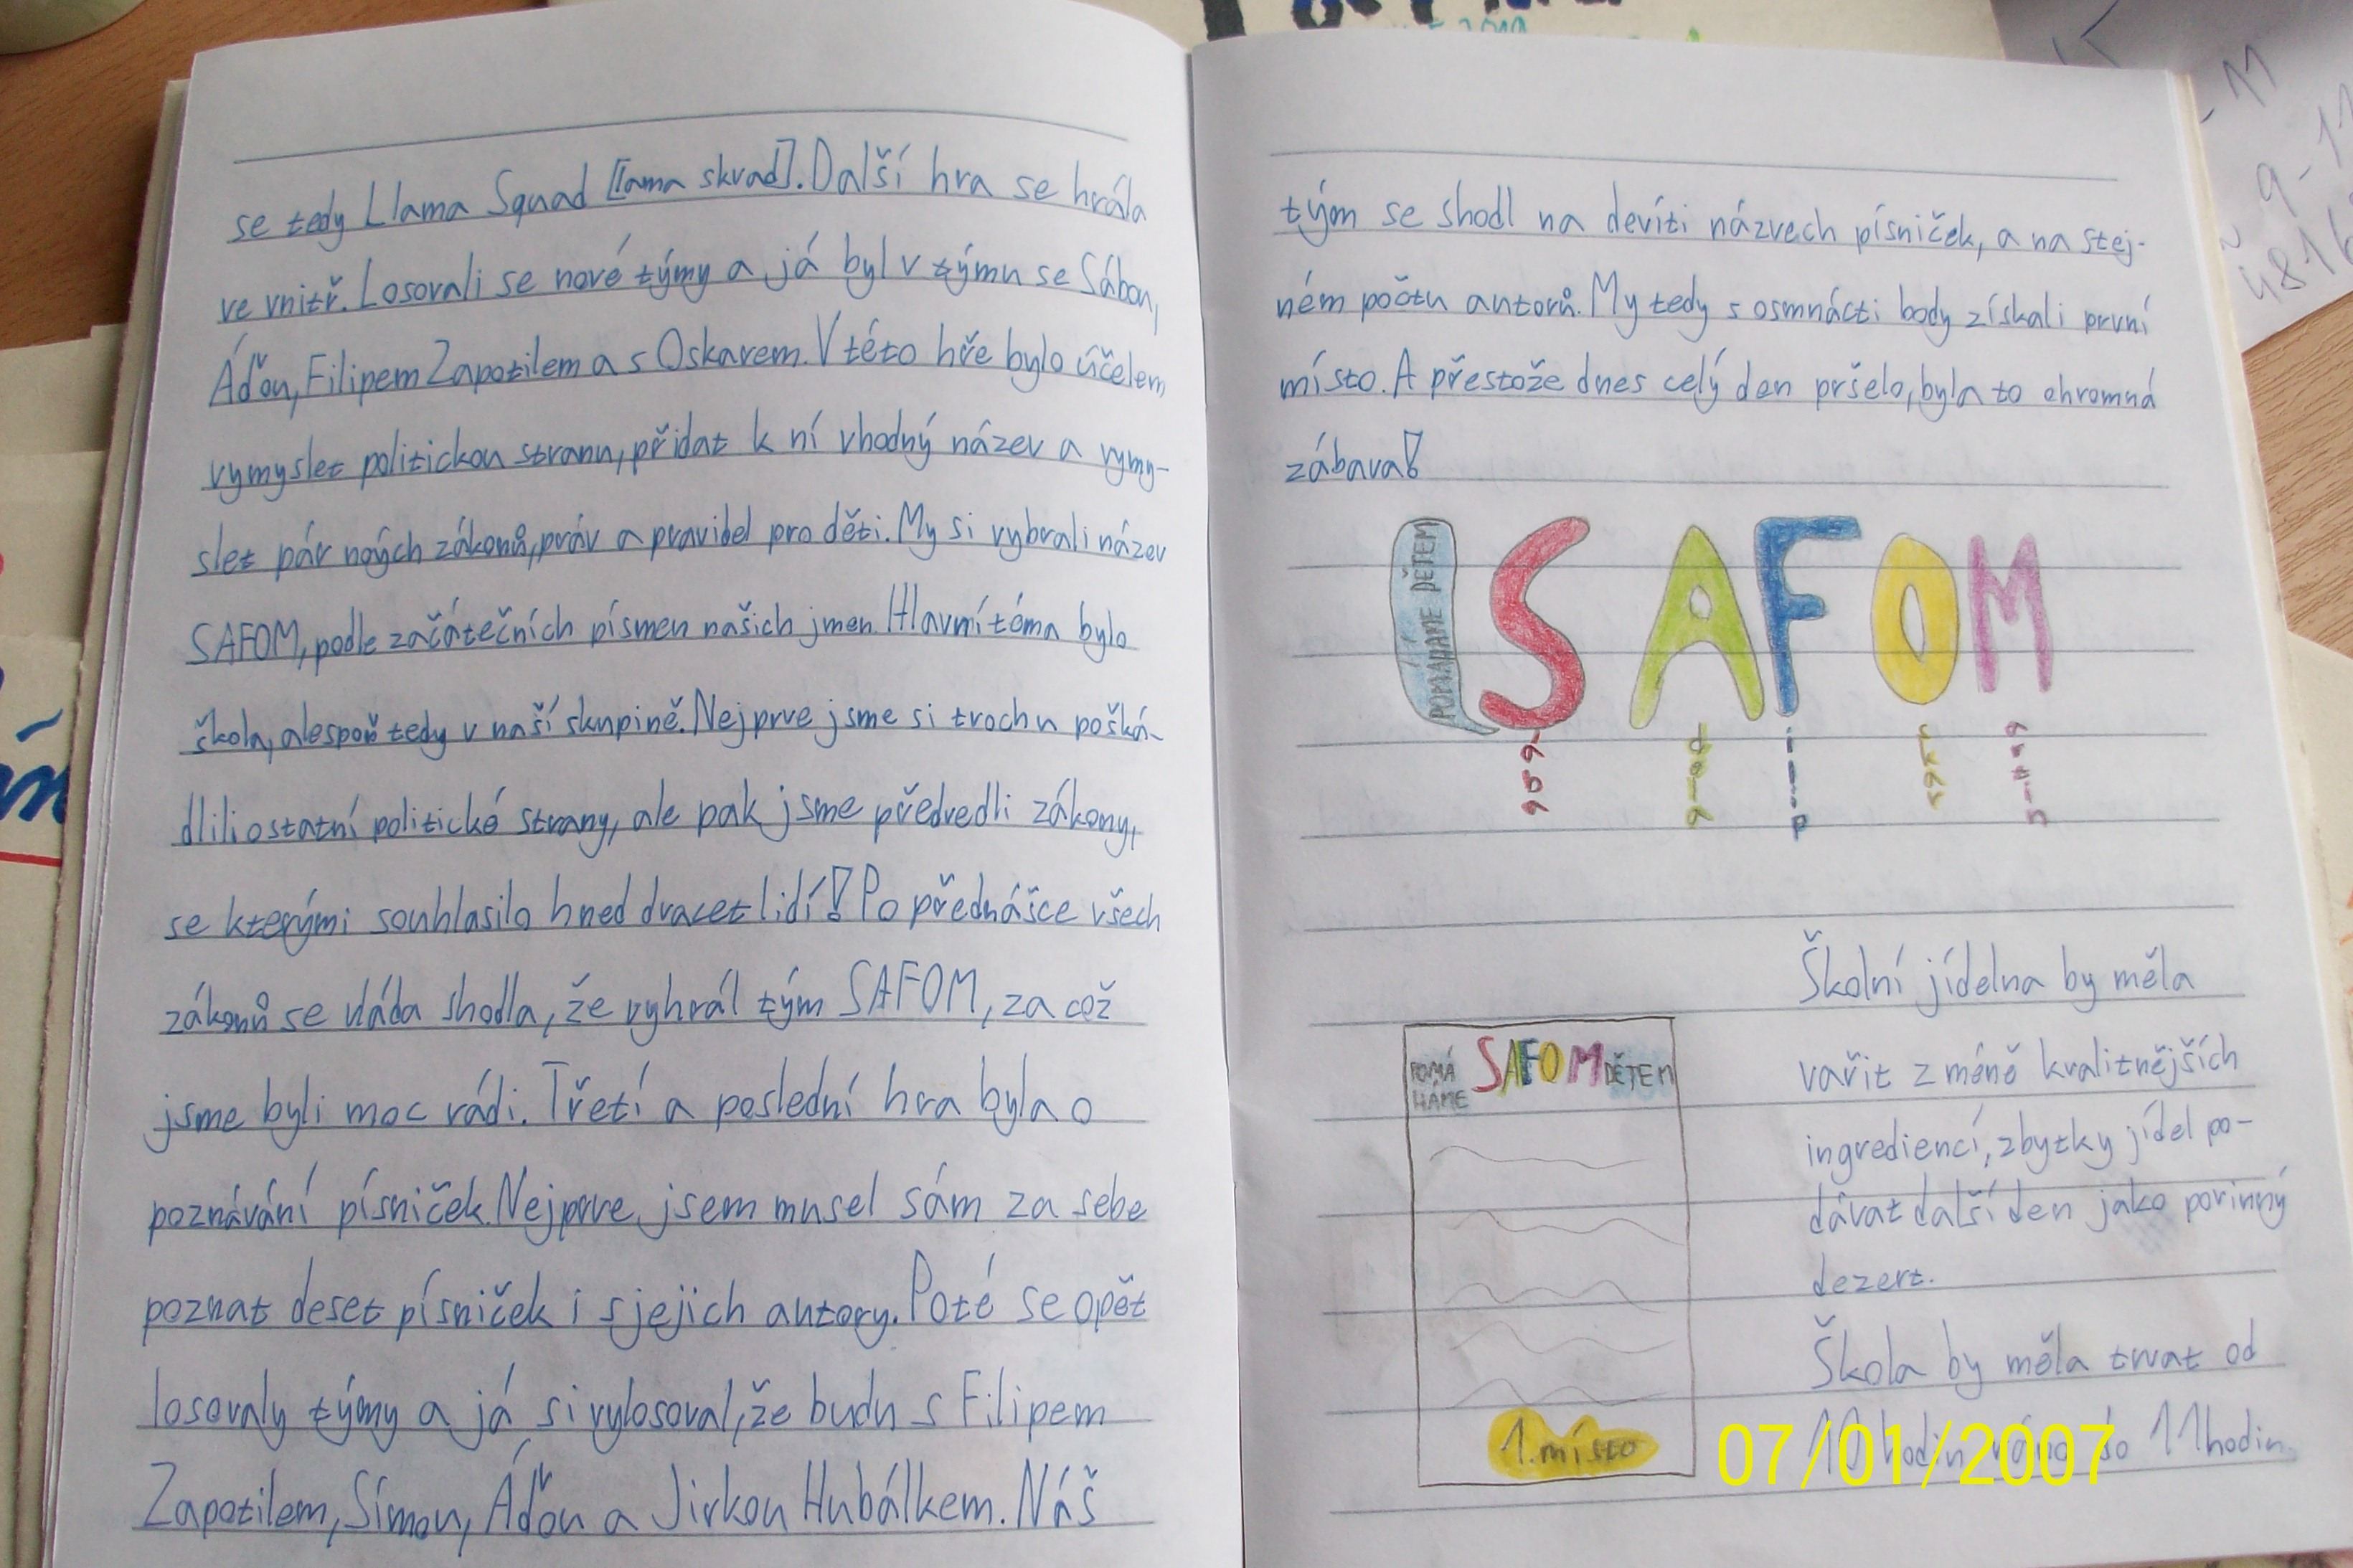 se tedy Llama Squad [lama skvad]. Další hra se hrála
ve vnitř. Losovali se nové týmy a já byl v týmu se Sábou,
Áďou, Filipem Zapotilem a s Oskarem. V této hře bylo účelem
vymyslet politickou stranu, přidat k ní vhodný název a vymy-
slet pár nových zákonů, práv a pravidel pro děti. My si vybrali název
SAFOM, podle začátečních písmen našich jmen. Hlavní téma bylo
škola, alespoň tedy v naší skupině. Nejprve jsme si trochu pošká-
dlili ostatní politické strany, ale pak jsme předvedli zákony,
se kterými souhlasilo hned dvacet lidí! Po přednášce všech
zákonů se vláda shodla, že vyhrál tým SAFOM, za což
jsme byli moc rádi. Třetí a poslední hra byla o
poznávání písniček. Nejprve jsem musel sám za sebe
poznat deset písniček i s jejich autory. Poté se opět
losovaly týmy a já si vylosoval, že budu s Filipem
Zapotilem, Símou, Áďou a Jirkou Hubálkem. Náš
tým se shodl na devíti názvech písniček, a na stej-
ném počtu autorů. My tedy s osmnácti body získali první
místo. A přestože dnes celý den pršelo, byla to ohromná
zábava!
POMÁHÁME DĚTEM
SAFOM
POMÁ
HÁME
SAFOM DĚTEM
1. místo
Školní jídelna by měla
vařit z méně kvalitnějších
ingrediencí, zbytky jídel po-
dávat další den jako povinný
dezert.
Škola by měla trvat od
10 hodin ráno do 11 hodin
07/01/2007
2019
- 11
9-11
4816